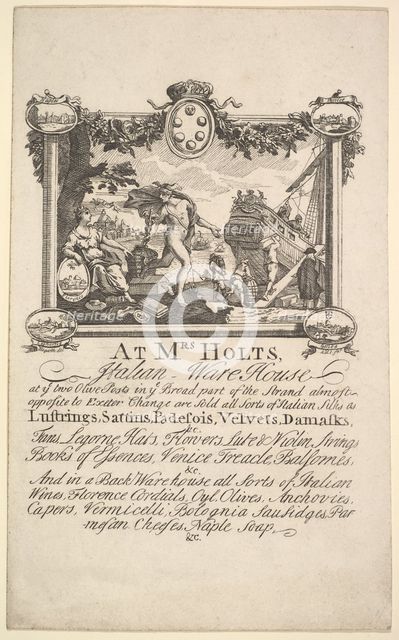 Naples
Venice
Genoua
Leghorn
AT MRS HOLTS,
Italian Ware House
at ye two Olive Posts in ye Broad part of the Strand almost
opposite to Exeter Change are sold all Sorts of Italian Silks as
Lustrings, Sattins, Padesois, Velvets, Damasks,
&c.
Fans, Legorne Hats, Flowers, Lute & Violin Strings,
Books of Essences, Venice Treacle, Balsomes,
&c.
And in a Back Warehouse all Sorts of Italian
Wines, Florence Cordials, Oyl, Olives, Anchovies,
Capers, Vermicelli, Bolognia Sausidges, Par-
mesan Cheeses, Naple Soap,
&c.
Heritage
Heritage
Heritage
Heritage
Heritage